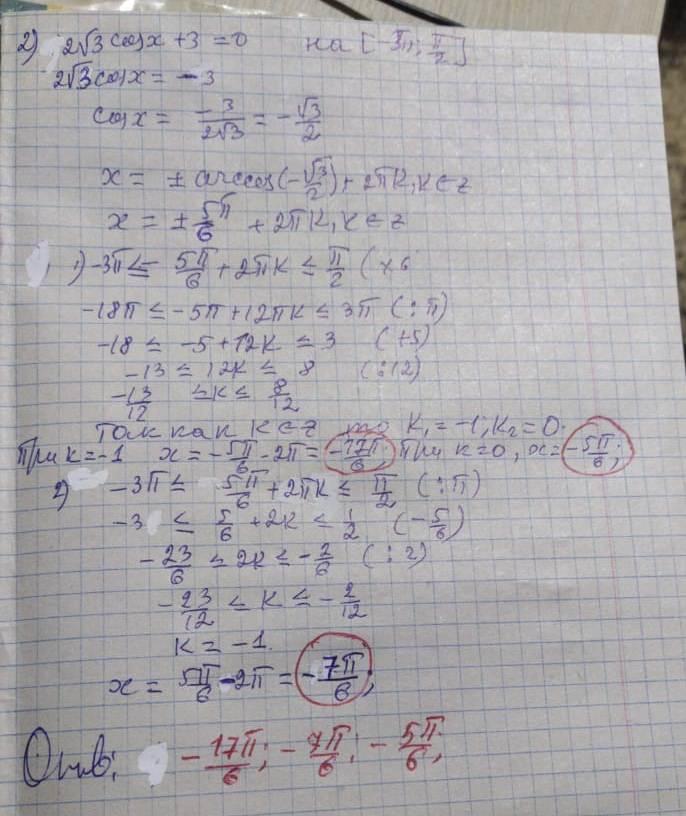 2) 2√3 cos x + 3 = 0 на [-3π; π/2]
2√3 cos x = -3
cos x = -3/2√3 = -√3/2
x = ± arccos(-√3/2) + 2πk, k ∈ z
x = ± 5π/6 + 2πk, k ∈ z
1) -3π ≤ - 5π/6 + 2πk ≤ π/2 (×6
-18π ≤ -5π + 12πk ≤ 3π (:π)
-18 ≤ -5 + 12k ≤ 3 (+5)
-13 ≤ 12k ≤ 8 (:12)
-13/12 ≤ k ≤ 8/12
Так как k ∈ z, то k₁ = -1, k₂ = 0.
При k = -1 x = -5π/6 - 2π = -17π/6; при k = 0, x = -5π/6;
2) -3π ≤ 5π/6 + 2πk ≤ π/2 (:π)
-3 ≤ 5/6 + 2k ≤ 1/2 (-5/6)
-23/6 ≤ 2k ≤ -2/6 (:2)
-23/12 ≤ k ≤ -2/12
k = -1.
x = 5π/6 - 2π = -7π/6;
Отв: -17π/6; -7π/6; -5π/6;